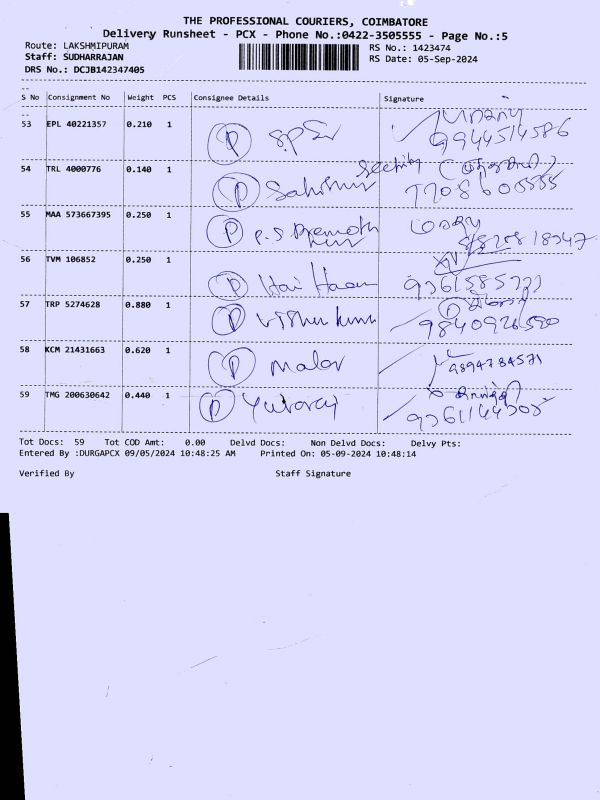 THE PROFESSIONAL COURIERS, COIMBATORE
Delivery Runsheet - PCX - Phone No.:0422-3505555 - Page No.:5
Route: LAKSHMIPURAM
RS No.: 1423474
Staff: SUDHARRAJAN
RS Date: 05-Sep-2024
DRS No.: DCJB142347405
S No Consignment No Weight PCS Consignee Details Signature
53 EPL 40221357 0.210 1 P
9944514586
54 TRL 4000776 0.140 1 P
55 MAA 573667395 0.250 1 P P.S. Pramoth
56 TVM 106852 0.250 1 P Hari
57 TRP 5274628 0.880 1 P Vishnu
9840926580
58 KCM 21431663 0.620 1 P Malar 9894784571
59 TMG 200630642 0.440 1 P Yuvaraj
Tot Docs: 59 Tot COD Amt: 0.00 Delvd Docs: Non Delvd Docs: Delvy Pts:
Entered By :DURGAPCX 09/05/2024 10:48:25 AM Printed On: 05-09-2024 10:48:14
Verified By Staff Signature